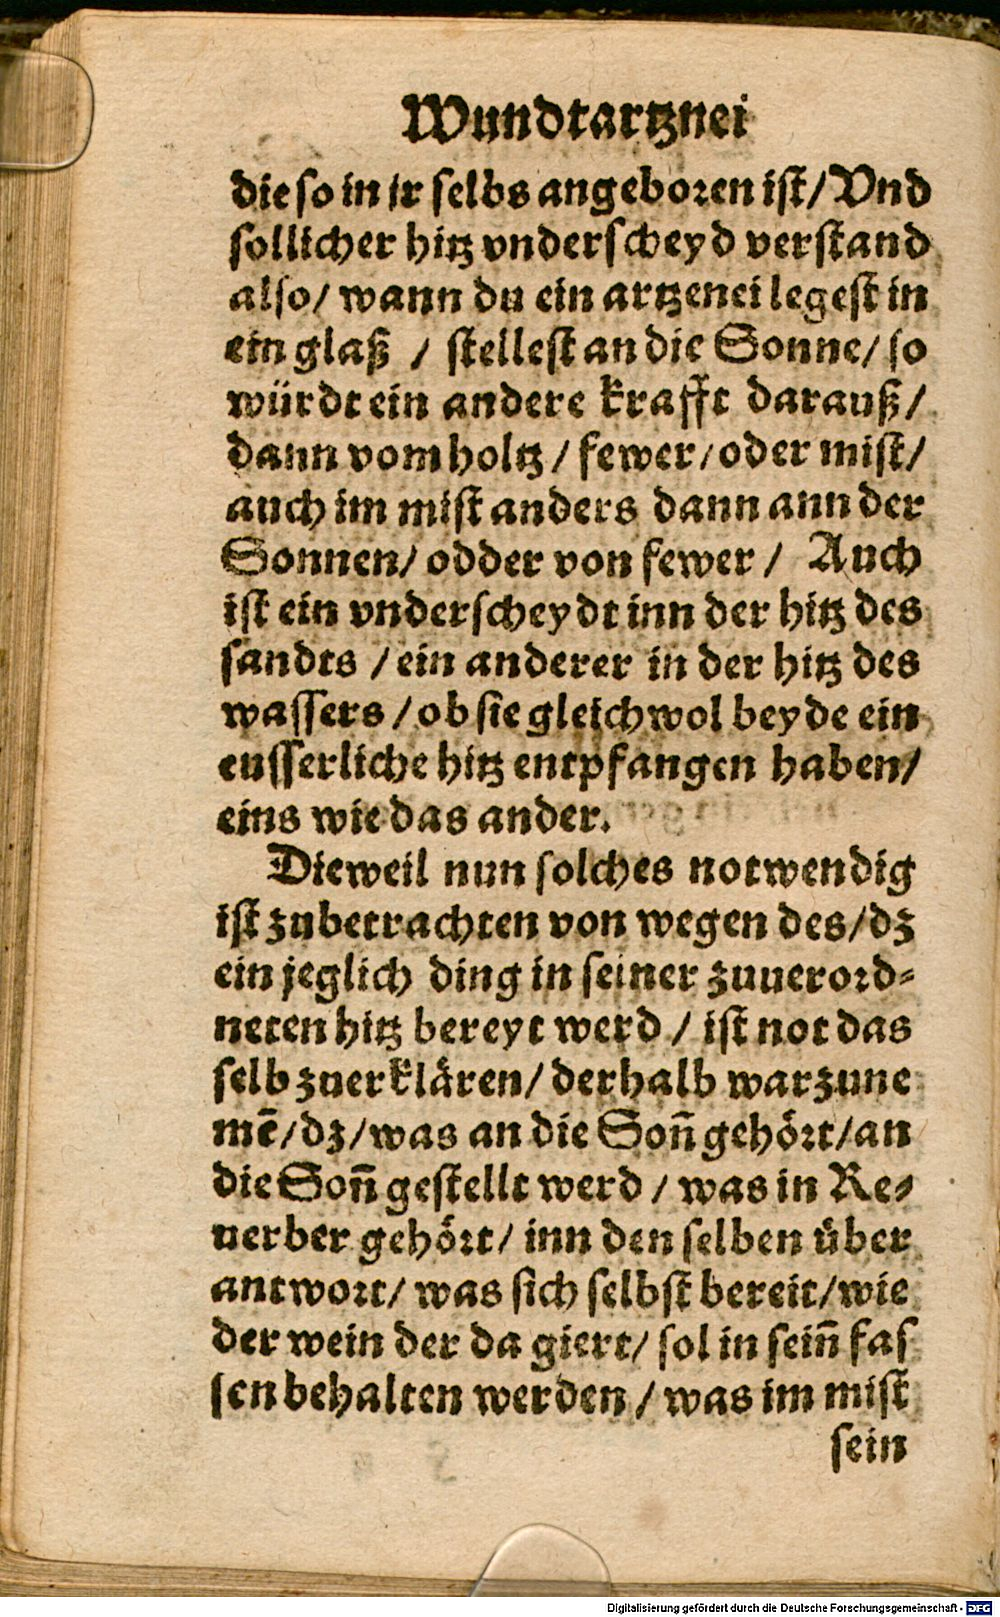 Wundtartznei
die so in ir selbs angeboren ist/ Vnd
sollicher hitz vnderscheyd verstand
also/ wann du ein artzenei legest in
ein glaß / stellest an die Sonne/ so
würdt ein andere krafft darauß/
dann vom holtz/ fewer/ oder mist/
auch im mist anders dann ann der
Sonnen/ odder von fewer/ Auch
ist ein vnderscheydt inn der hitz des
sandts / ein anderer in der hitz des
wassers / ob sie gleichwol beyde ein
eusserliche hitz entpfangen haben/
eins wie das ander.
Dieweil nun solches notwendig
ist zubetrachten von wegen des/ dz
ein jeglich ding in seiner zuuerord-
neten hitz bereyt werd / ist not das
selb zuerklären/ derhalb warzune
mē/ dz/ was an die Soñ gehört/ an
die Soñ gestellt werd / was in Re-
uerber gehört/ inn den selben über
antwort/ was sich selbst bereit/ wie
der wein der da giert/ sol in seiñ fas
sen behalten werden / was im mist
sein
Digitalisierung gefördert durch die Deutsche Forschungsgemeinschaft - DFG